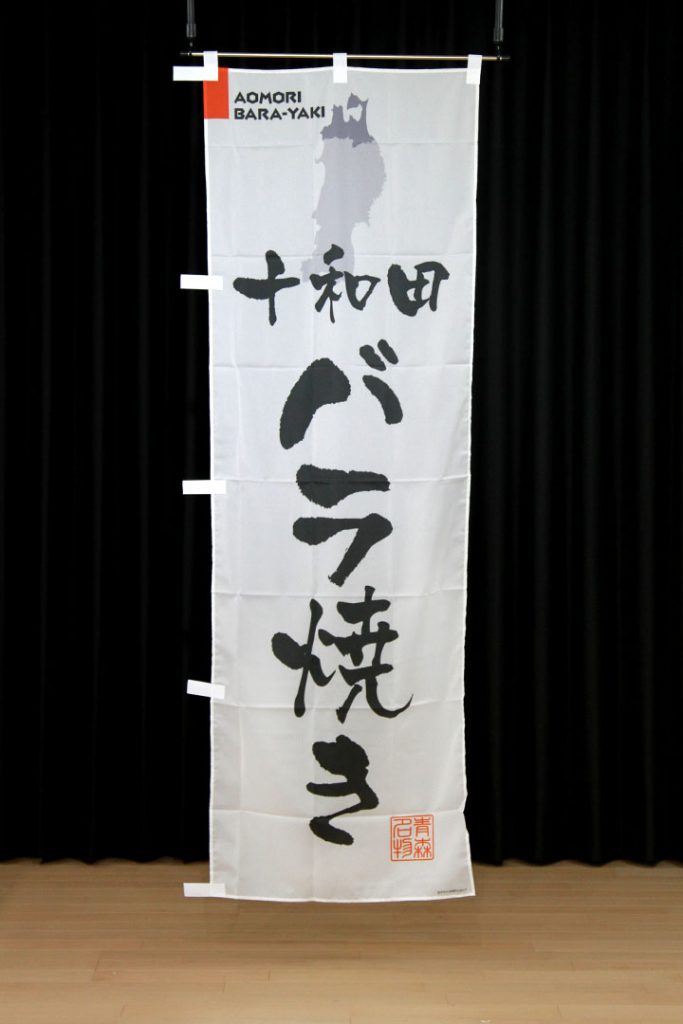 AOMORI
BARA-YAKI
十和田
バラ焼き
青森
名物